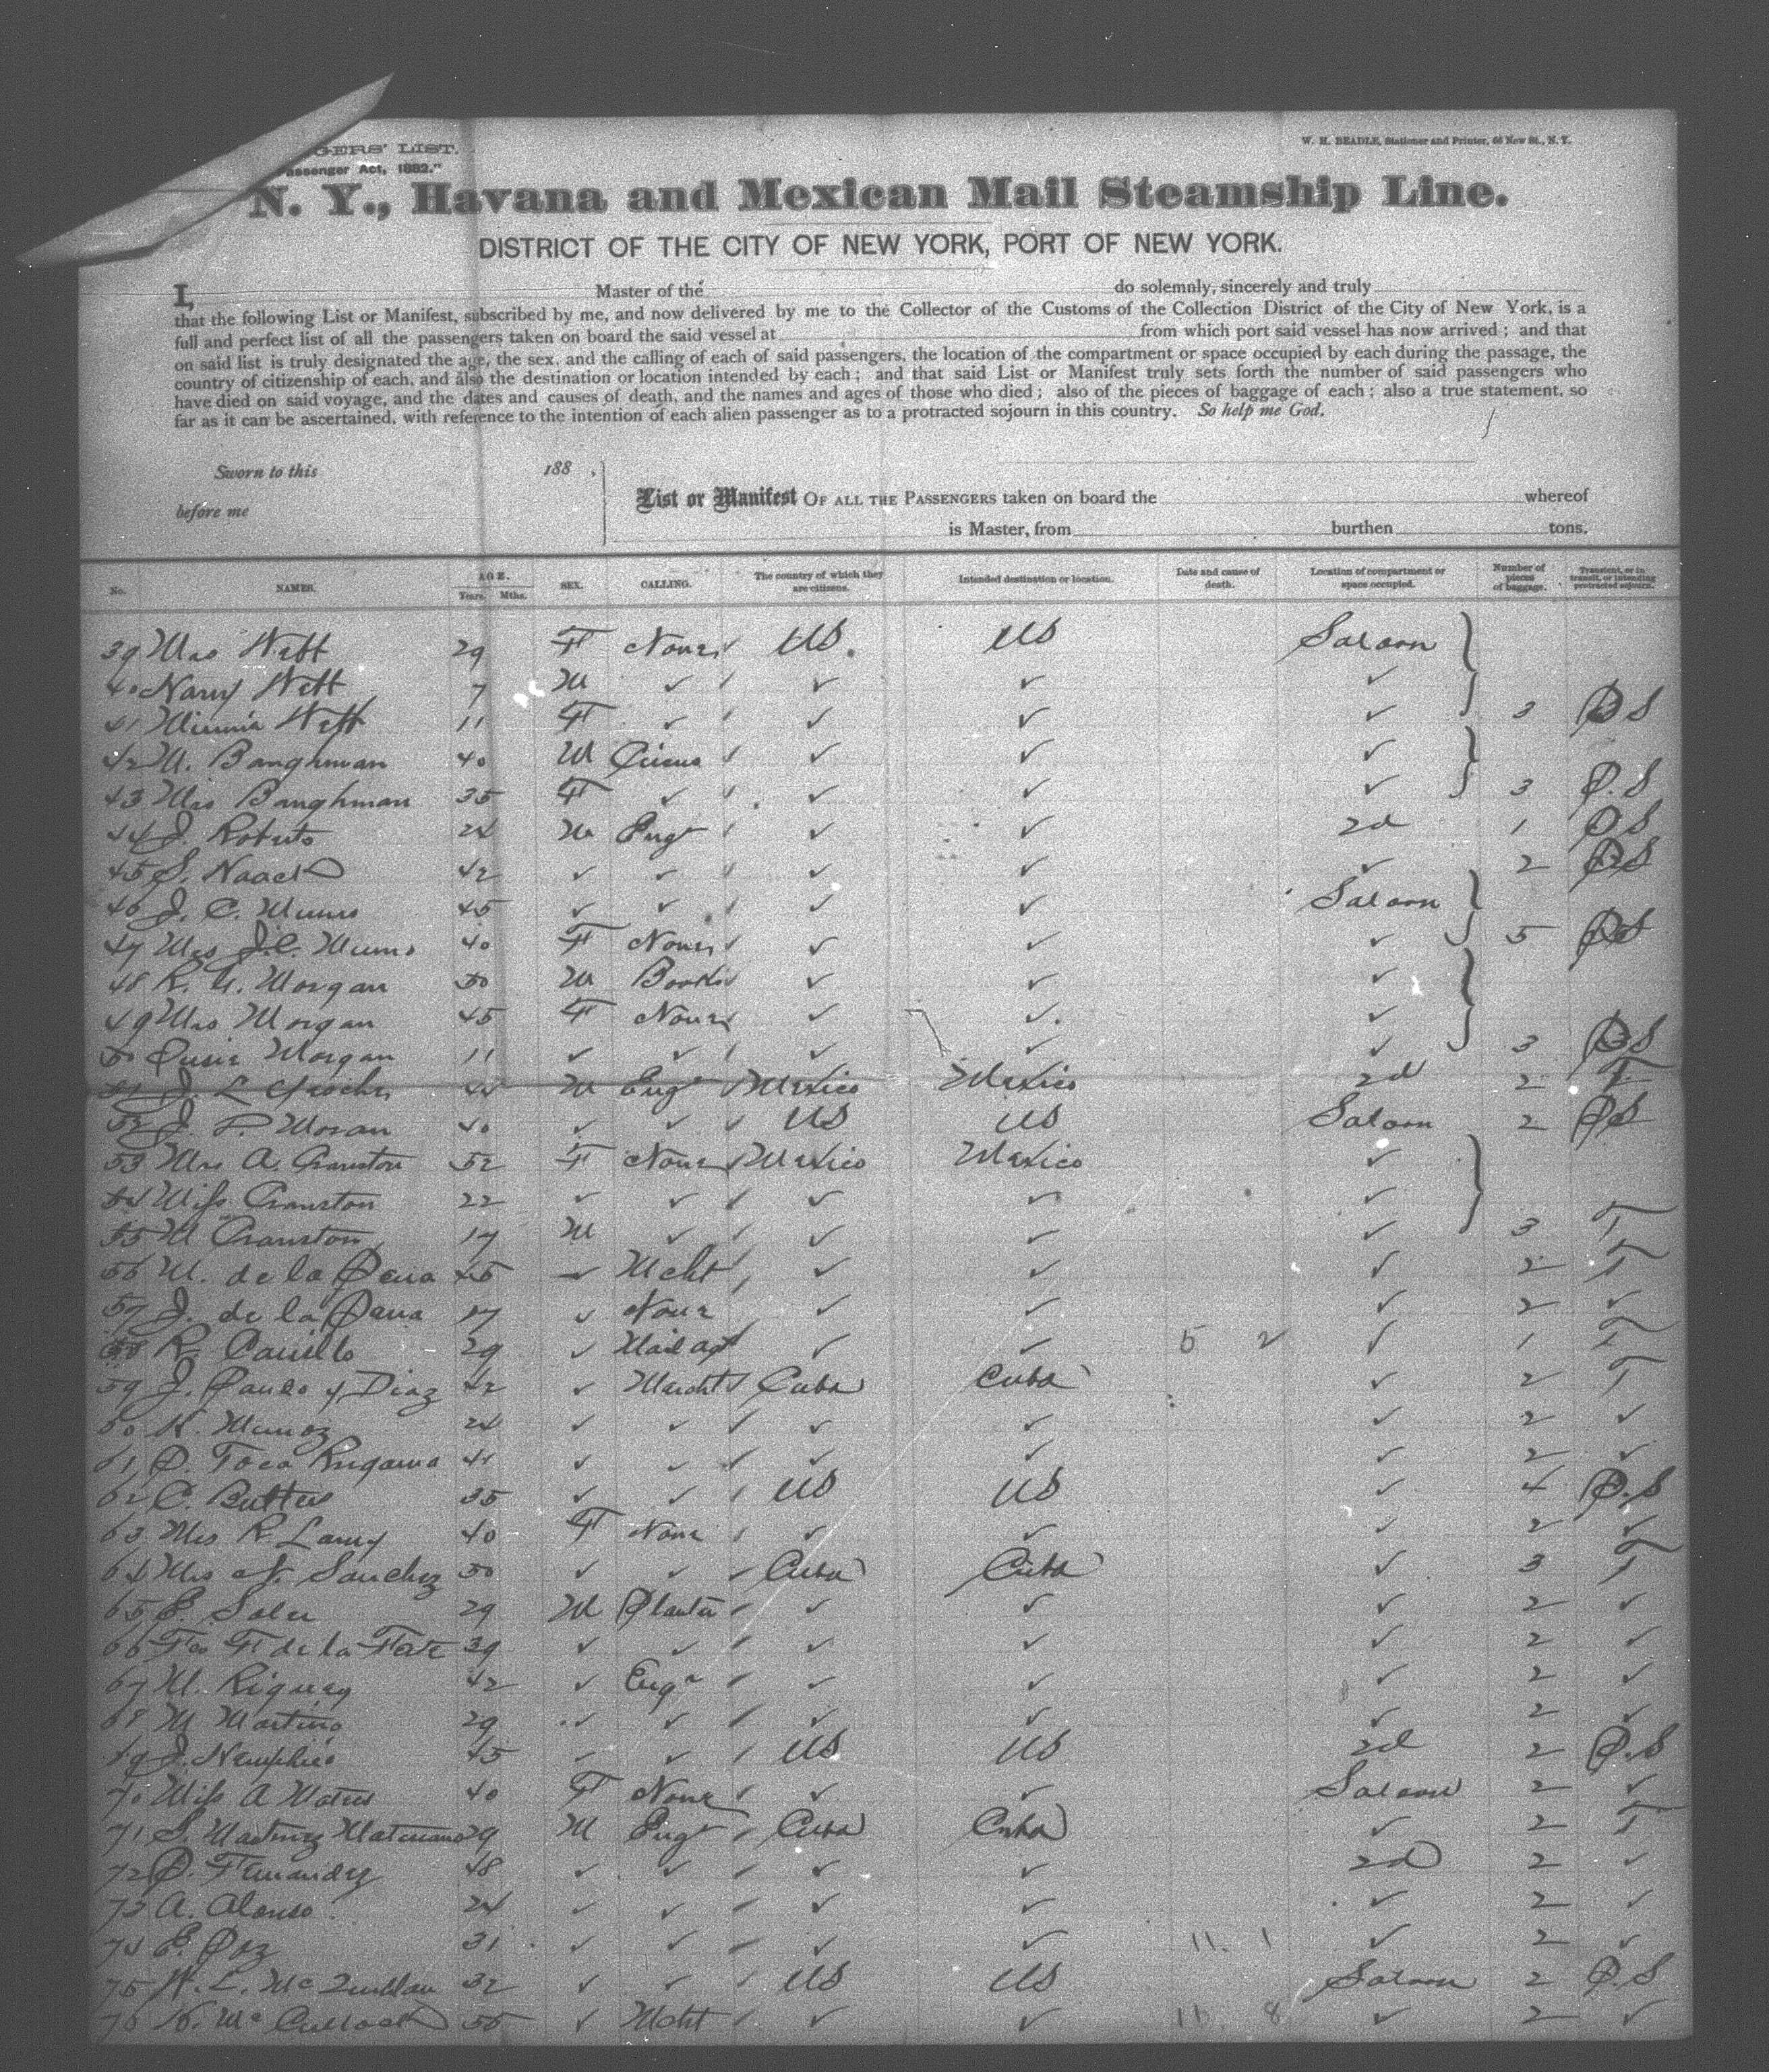 W. H. BEADLE, Stationer and Printer, 66 New St., N. Y.
GERS' LIST.
Passenger Act, 1882."
N. Y., Havana and Mexican Mail Steamship Line.
DISTRICT OF THE CITY OF NEW YORK, PORT OF NEW YORK.
I, Master of the do solemnly, sincerely and truly
that the following List or Manifest, subscribed by me, and now delivered by me to the Collector of the Customs of the Collection District of the City of New York, is a
full and perfect list of all the passengers taken on board the said vessel at from which port said vessel has now arrived; and that
on said list is truly designated the age, the sex, and the calling of each of said passengers, the location of the compartment or space occupied by each during the passage, the
country of citizenship of each, and also the destination or location intended by each; and that said List or Manifest truly sets forth the number of said passengers who
have died on said voyage, and the dates and causes of death, and the names and ages of those who died; also of the pieces of baggage of each; also a true statement, so
far as it can be ascertained, with reference to the intention of each alien passenger as to a protracted sojourn in this country. So help me God.
Sworn to this 188 .
before me
List or Manifest OF ALL THE PASSENGERS taken on board the whereof
is Master, from burthen tons.
No. NAMES. AGE. Years. Mths. SEX. CALLING. The country of which they are citizens. Intended destination or location. Date and cause of death. Location of compartment or space occupied. Number of pieces of baggage. Transient, or in transit, or intending protracted sojourn.
39 Mrs 29 F None ✓ US. US Saloon
40 7 M ✓ ✓ ✓ ✓
41 Minnie 11 F ✓ ✓ ✓ ✓ 3 PS
42 M. Baughman 40 M Circus ✓ ✓ ✓ ✓
43 Mrs Baughman 35 F ✓ ✓ ✓ ✓ 3 P.S
44 J. Roberts 24 M Engr ✓ ✓ 2d 1 PS
45 S. 42 ✓ ✓ ✓ ✓ ✓ 2 PS
46 J. C. Munro 45 ✓ ✓ ✓ ✓ Saloon
47 Mrs J.C. Munro 40 F None ✓ ✓ ✓ ✓ 5 PS
48 R. Morgan 50 M Books ✓ ✓ ✓
49 Mrs Morgan 45 F None ✓ ✓ ✓
50 Susie Morgan 11 ✓ ✓ ✓ ✓ ✓ 3 PS
51 J. L 44 M Engr ✓ Mexico Mexico 2d 2 T
52 J. P. Moran 40 ✓ ✓ ✓ US US Saloon 2 PS
53 Mrs A. Cranston 52 F None ✓ Mexico Mexico ✓
54 Miss Cranston 22 ✓ ✓ ✓ ✓ ✓ ✓
55 M Cranston 17 M ✓ ✓ ✓ ✓ ✓ 3 T
56 M. de la Pena 45 ✓ Mcht ✓ ✓ ✓ 2 T
57 J. de la Pena 17 ✓ None ✓ ✓ ✓ 2 ✓
58 R. Carrillo 29 ✓ Mail agt ✓ ✓ 5 2 ✓ 1 T
59 J. y Diaz 42 ✓ Marcht ✓ Cuba Cuba ✓ 2 T
60 Munoz 24 ✓ ✓ ✓ ✓ ✓ ✓ 2 ✓
61 P. Toca 41 ✓ ✓ ✓ ✓ ✓ ✓ 2 ✓
62 C. Butters 35 ✓ ✓ US US ✓ 4 P.S
63 Mrs R Lamy 40 F None ✓ ✓ ✓ 2 ✓
64 Mrs N. Sanchez 50 ✓ ✓ ✓ Cuba Cuba ✓ 3 T
65 E. Soler 29 M Planter ✓ ✓ ✓ ✓ 2 ✓
66 Fco F. de la 39 ✓ ✓ ✓ ✓ ✓ ✓ 2 ✓
67 M. 42 ✓ Engr ✓ ✓ ✓ ✓ 2 ✓
68 M Martino 29 ✓ ✓ ✓ ✓ ✓ ✓ 2 ✓
69 J. 45 ✓ ✓ US US 2d 2 P.S
70 Miss A 40 F None ✓ ✓ ✓ Saloon 2 ✓
71 S. Martinez 29 M Engr ✓ Cuba Cuba ✓ 2 T
72 P. Fernandez 48 ✓ ✓ ✓ ✓ ✓ 2d 2 ✓
73 A. Alonso 24 ✓ ✓ ✓ ✓ ✓ ✓ 2 ✓
74 E. 31 ✓ ✓ ✓ ✓ ✓ 11. 1 ✓ 2 ✓
75 L. McQuillan 32 ✓ ✓ US US Saloon 2 P.S
76 McCulloch 55 ✓ Mcht ✓ ✓ ✓ 11 8 ✓ 2 ✓